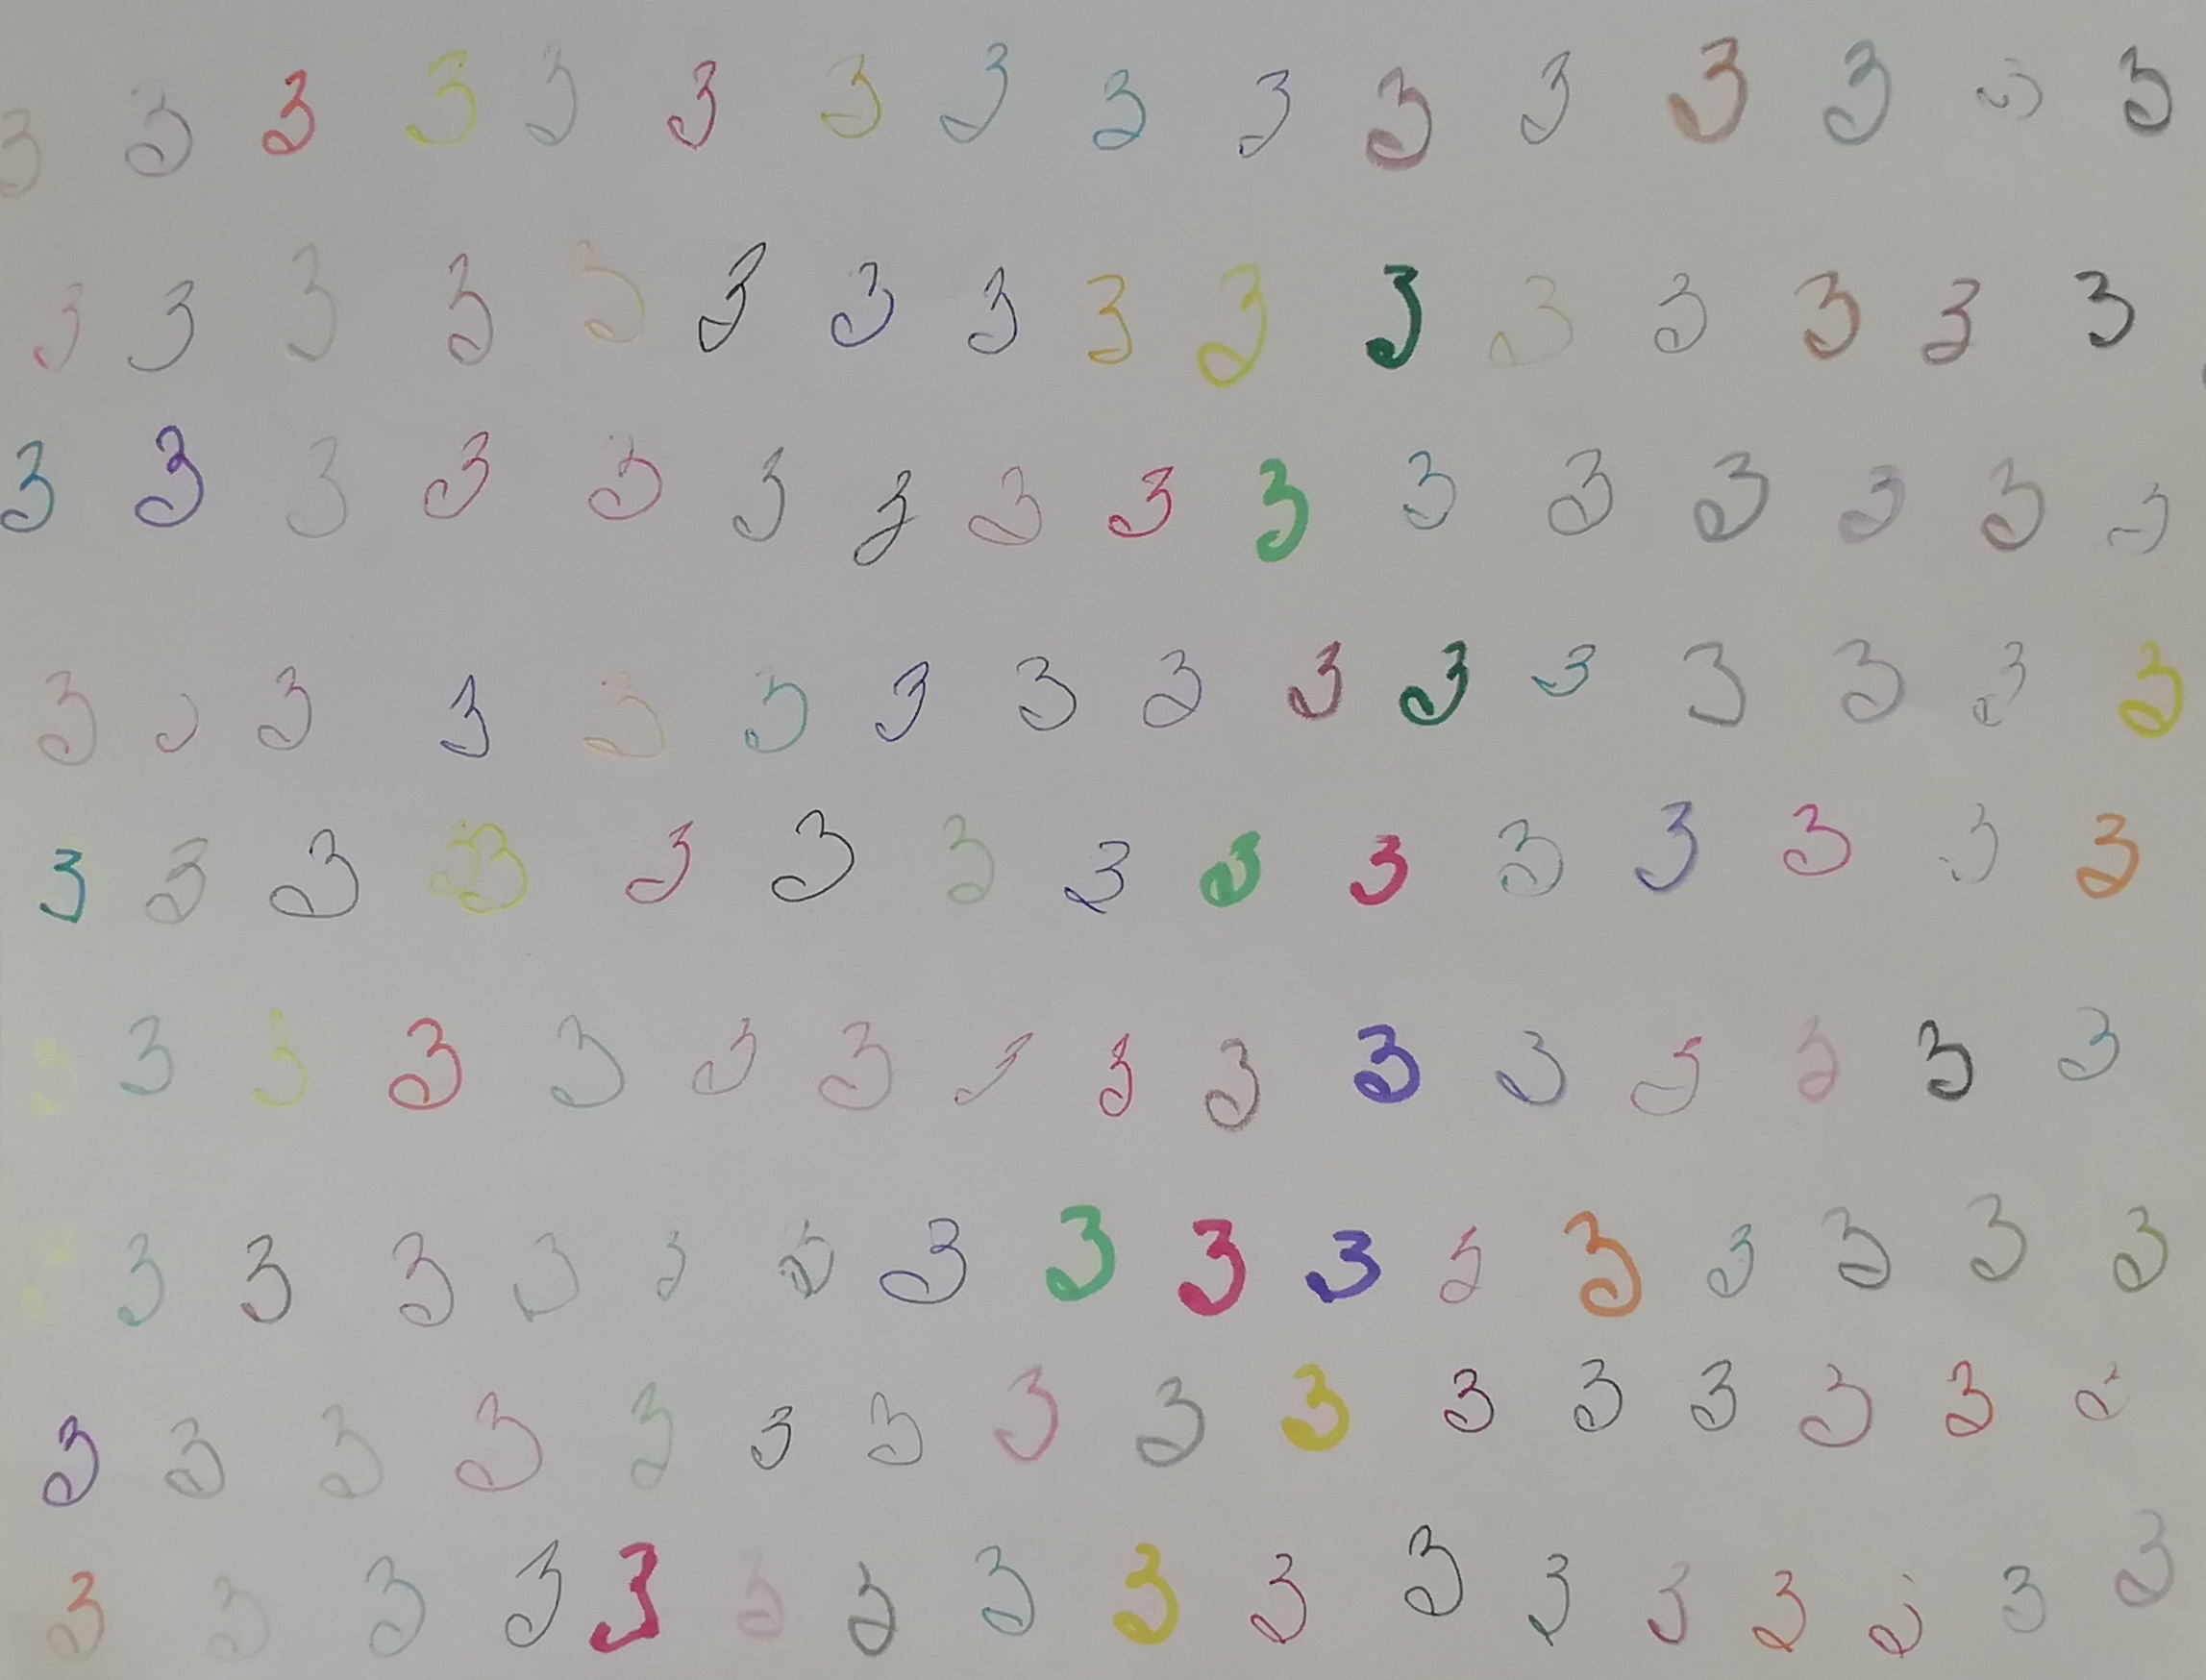 3 3 3 3 3 3 3 3 3 3 3 3 3 3 3 3
3 3 3 3 3 3 3 3 3 3 3 3 3 3 3 3
3 3 3 3 3 3 3 3 3 3 3 3 3 3 3 3
3 3 3 3 3 3 3 3 3 3 3 3 3 3 3
3 3 3 3 3 3 3 3 3 3 3 3 3 3 3
3 3 3 3 3 3 3 3 3 3 3 3 3 3 3
3 3 3 3 3 3 3 3 3 3 3 3 3 3 3
3 3 3 3 3 3 3 3 3 3 3 3 3 3 3 3
3 3 3 3 3 3 3 3 3 3 3 3 3 3 3 3 3